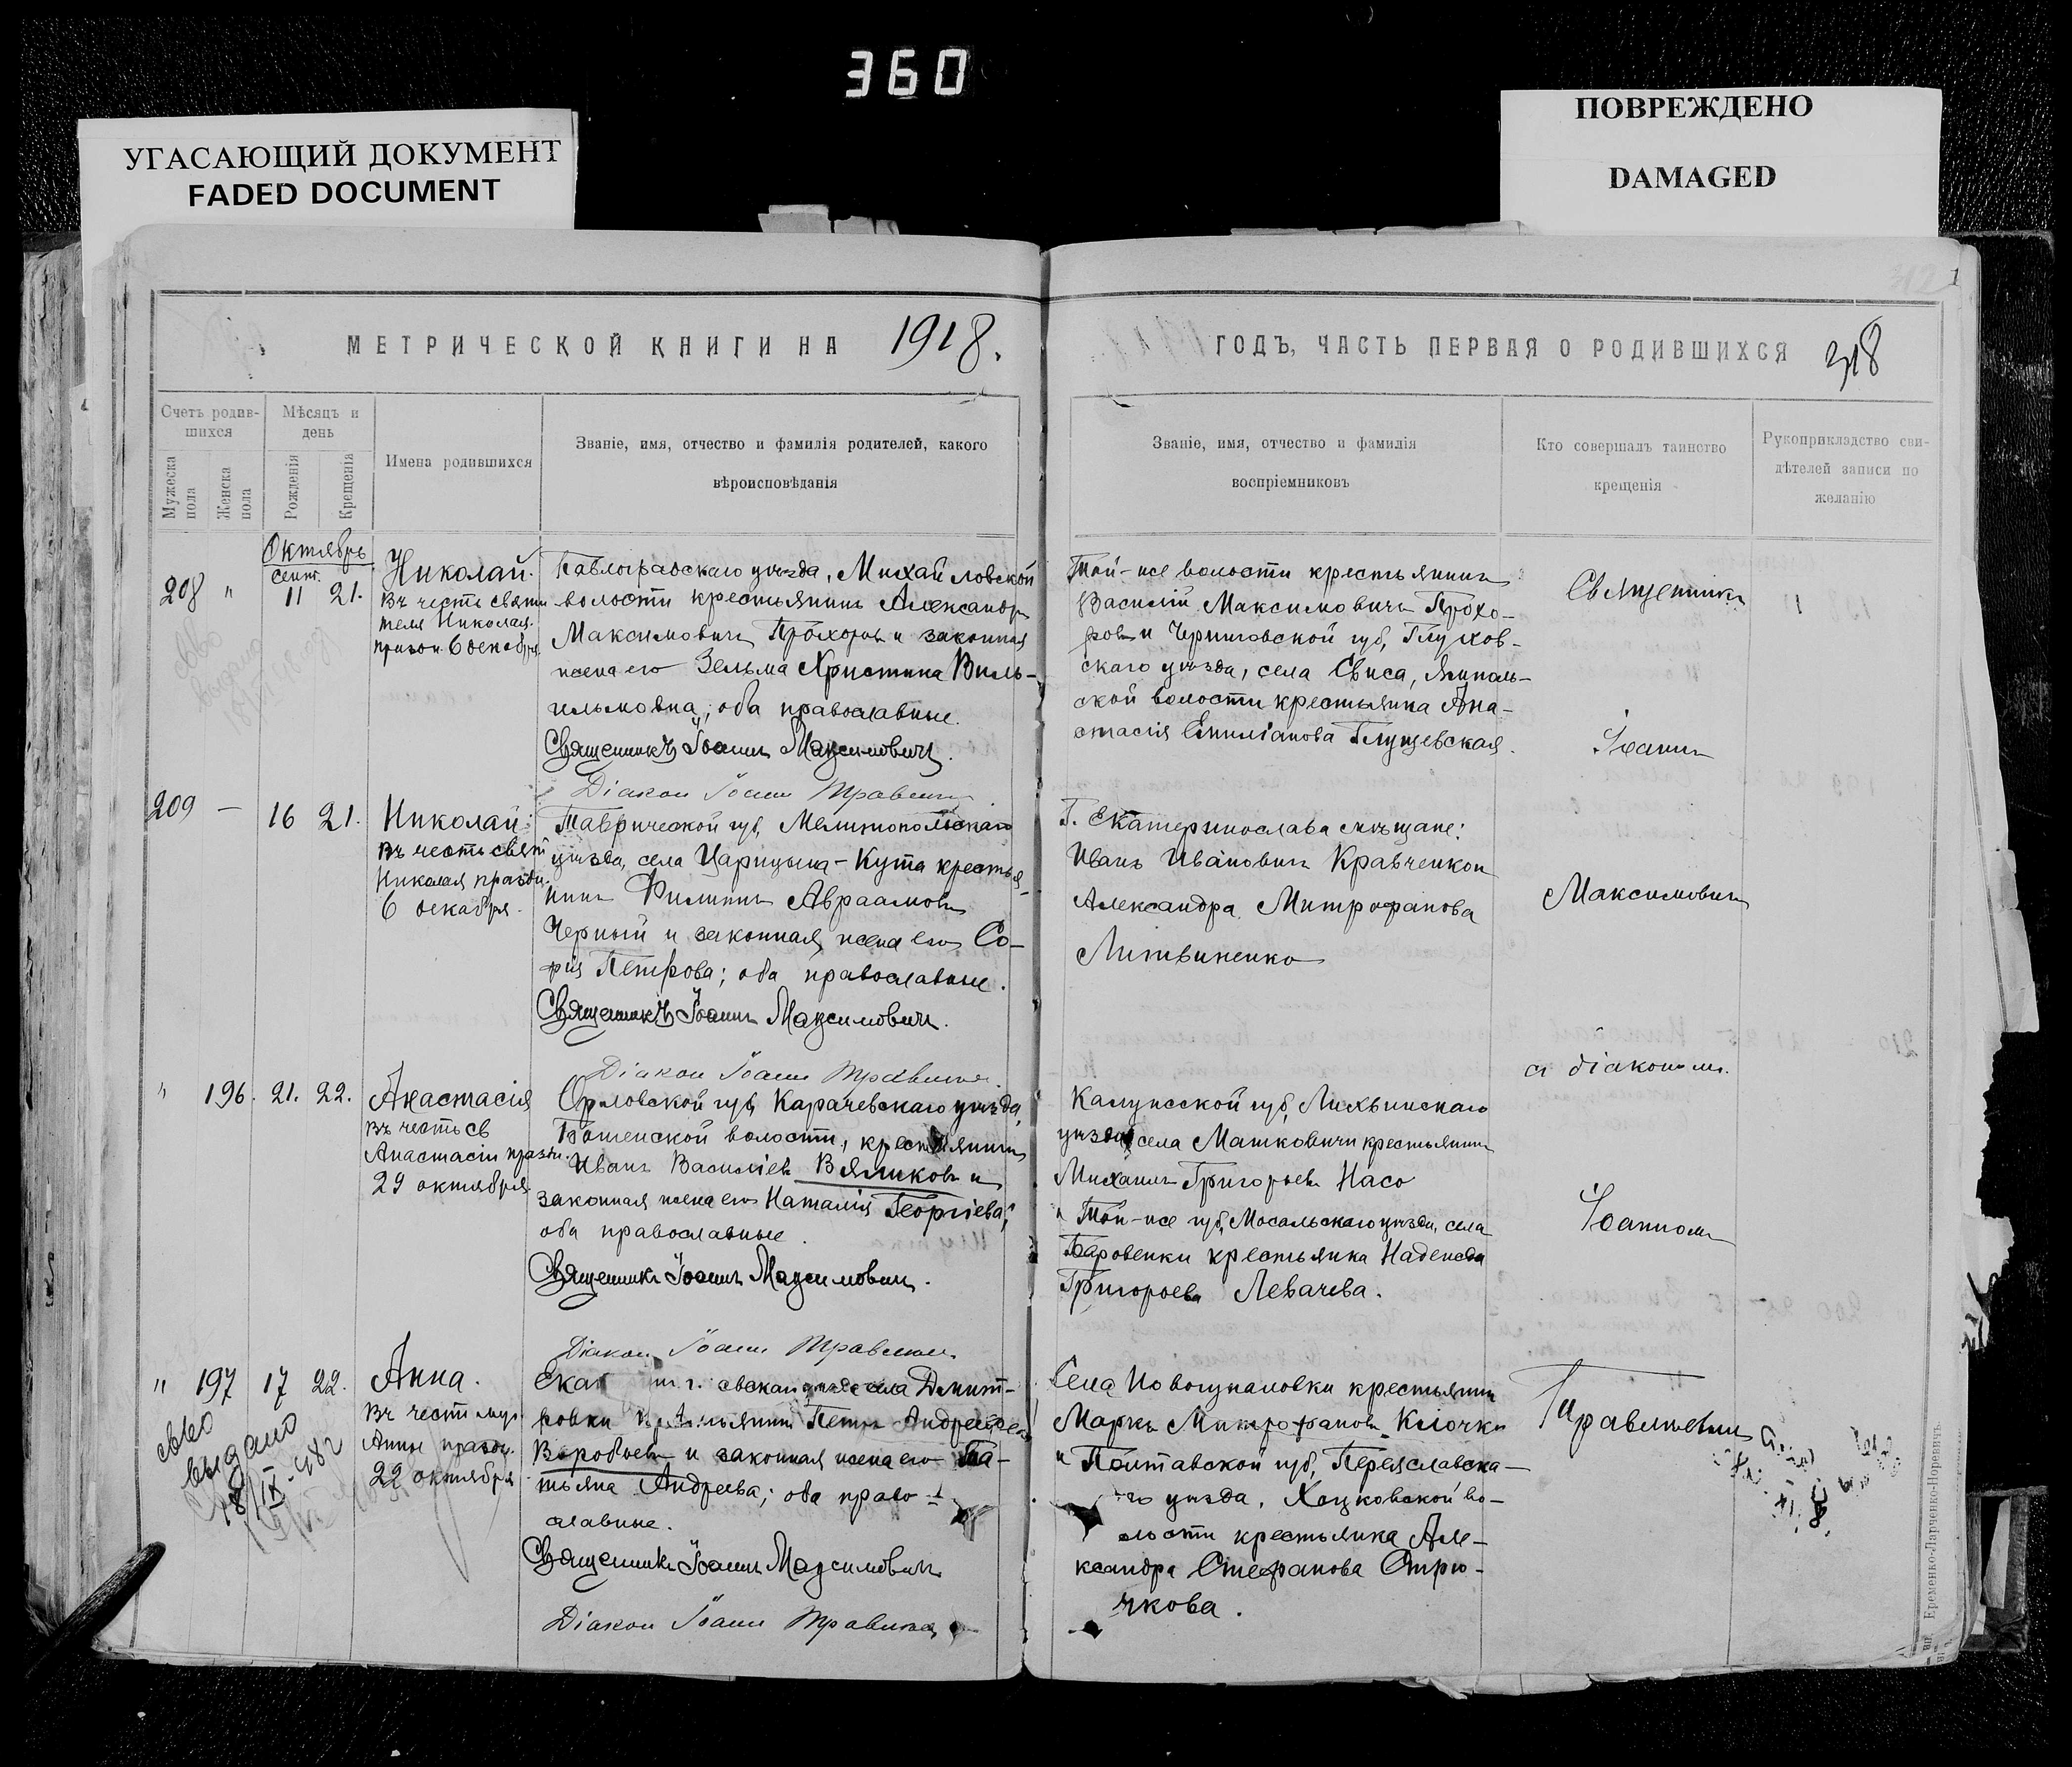 360
УГАСАЮЩИЙ ДОКУМЕНТ
FADED DOCUMENT
ПОВРЕЖДЕНО
DAMAGED
МЕТРИЧЕСКОЙ КНИГИ НА 1918.
ГОДЪ, ЧАСТЬ ПЕРВАЯ О РОДИВШИХСЯ 318
Счетъ родив-
шихся
Мужеска пола
Женска пола
Мѣсяцъ и
день
Рожденія
Крещенія
Имена родившихся
Званіе, имя, отчество и фамилія родителей, какого
вѣроисповѣданія
Званіе, имя, отчество и фамилія
воспріемниковъ
Кто совершалъ таинство
крещенія
Рукоприкладство сви-
дѣтелей записи по
желанію
Октябрь
208 " сент. 11 21.
Николай.
Въ честь святи
теля Николая
празн. 6 декабря
Павлоградскаго уѣзда, Михайловской
волости крестьянинъ Александръ
Максимовичъ Прохоровъ и законная
жена его Зельма Христина Виль-
гельмовна; оба православные.
Священникъ Іоаннъ Максимовичъ.
Діакон Іоанн
Той-же волости крестьянинъ
Василій Максимовичъ Прохо-
ровъ и Черниговской губ, Глухов-
скаго уѣзда, села Свиса, Ямполь-
ской волости крестьянка Ана-
стасія Емиліанова Глущевская.
209 — 16 21.
Николай
Въ честь свят
Николая празdн.
6 декабря.
Таврической губ, Мелитопольскаго
уѣзда, села Царицына-Кута крестья-
нинъ Филиппъ Авраамовъ
Черный и законная жена его Со-
фія Петрова; оба православные.
Священникъ Іоаннъ Максимовичъ.
Діакон Іоанн
Г. Екатеринослава мѣщане:
Иванъ Ивановичъ Кравченко и
Александра Митрофанова
Литвиненко
" 196. 21. 22.
Анастасія
Въ честь св
Анастасіи празн.
29 октября
Орловской губ, Карачевскаго уѣзда,
волости, крестьянинъ
Иванъ Василіевъ Вяликовъ и
законная жена его Наталія Георгіева;
оба православные.
Священникъ Іоаннъ Максимовичъ.
Діакон Іоанн
Калужской губ, Лихвинскаго
уѣзда села Машковичи крестьянинъ
Михаилъ Григорьевъ Насо
и Той-же губ, Мосальскаго уѣзда, села
Баровенки крестьянка Надежда
Григорьева Левачева.
" 197 17 22.
Анна.
Въ честь муч.
Анны празн.
22 октября
св-во
выдано
18/IX-482
села Дмит-
ровки крестьянинъ Петръ Андреевъ
Воробьевъ и законная жена его Та-
тьяна Андреева; оба право-
славные.
Священникъ Іоаннъ Максимовичъ
Діакон Іоанн
Села Новогупаловки крестьянинъ
Маркъ Митрофановъ Клочко
и Полтавской губ, Переяславска-
го уѣзда, Хоцковской во-
лости крестьянка Але-
ксандра Стефанова Стрю-
чкова.
Священникъ
Іоаннъ
Максимовичъ
съ діакономъ
Іоанномъ
Еременко-Ларченко-Норевичъ